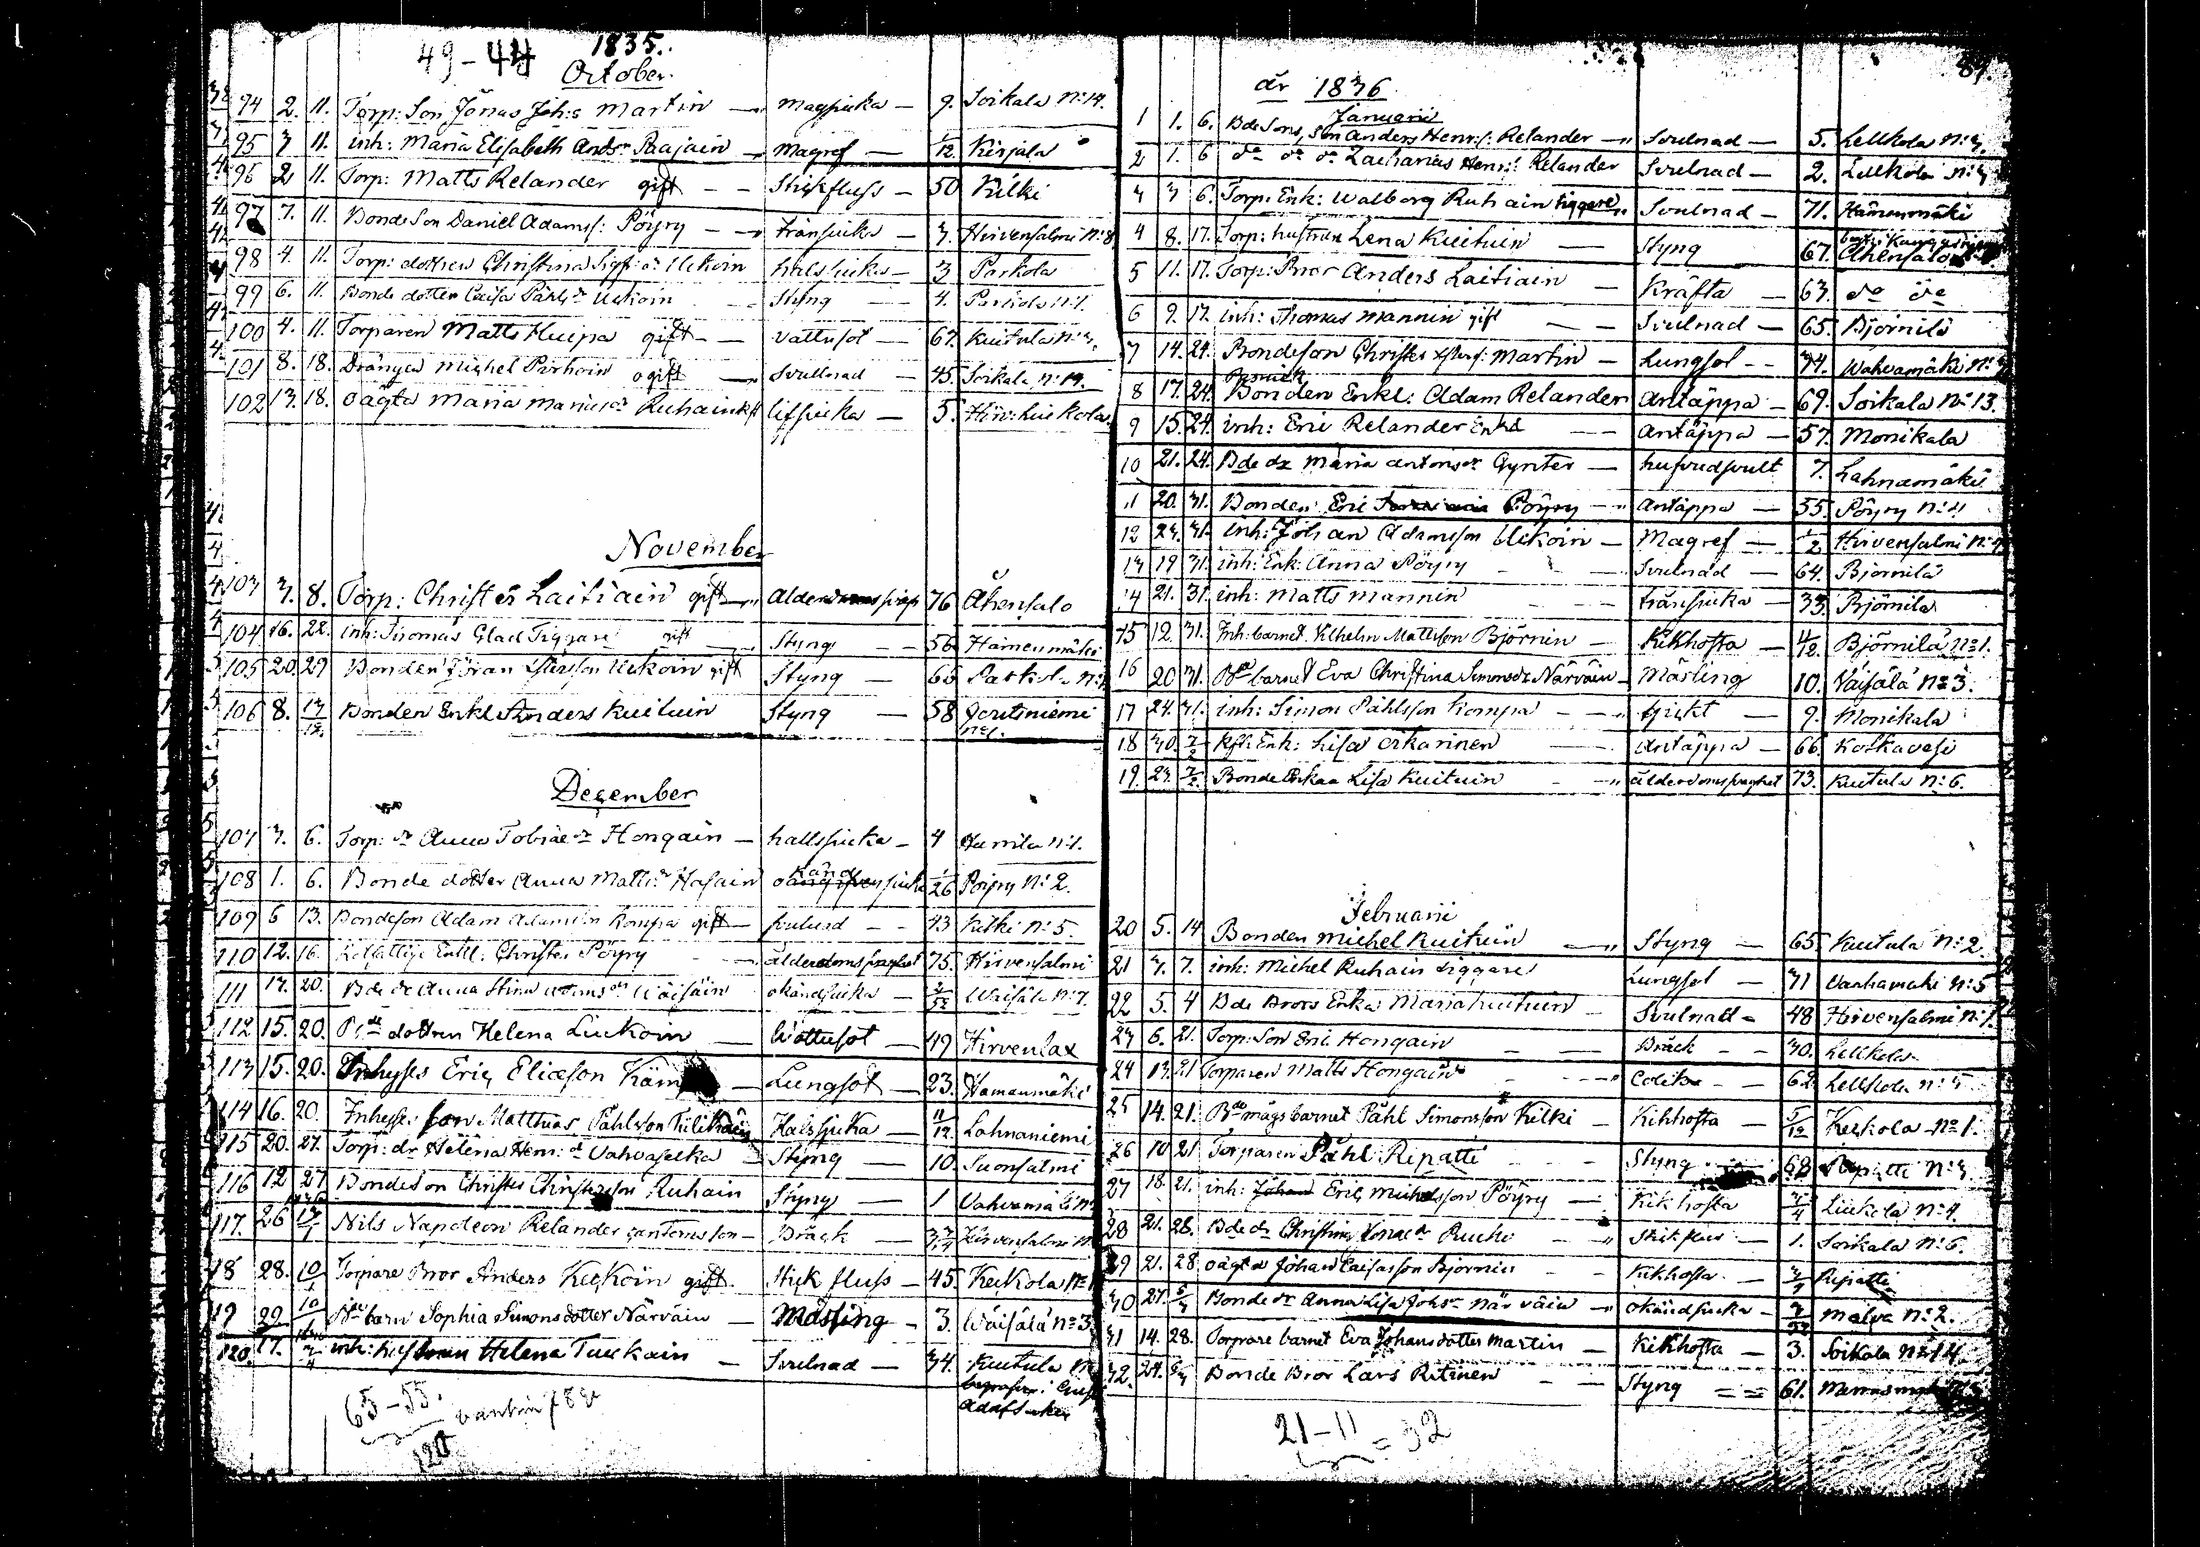 49-44 1835.
October.
94 2. 11. Torp: Son Jönas Joh:s Martin — magsjuka — 9. Soikala N:14.
95 3 11. inh: Maria Elisabeth And:r Paajain — Magref — 1/12 Kirjala
96 2 11. Torp: Matts Relander gift — Stickfluss — 50 Kilki
97 7. 11. Bonde Son Daniel Adamss: Pöyry — tränsjuka — 3. Hirvensalmi N:8
98 4. 11. Torp: dottren Christina Uckoin halssjuka — 3 Parkola
99 6. 11. Bonde dotter Caisa Påhls dr Uckoin Styng — 4. Parkola N:1.
100 4. 11. Torparen Matts Huipa gift — vattusot — 67. Kuitula N:3.
101 8. 18. Drängen Michel Parhoin ogift — Svullnad — 45. Soikala N:14.
102 13. 18. oägta Maria Ruhain lifsjuka — 5. Hirv: Liukola.
November
103 3. 8. Torp: Christer Laitiain gift — 76 Ahensalo
104 16. 22. inh: Thomas Glad Tiggare gift Styng — 56 Hämenmäki
105 20. 29 Bonden Göran Uckoin gift Styng — 66 Parkola N:1
106 8. 13/12. Bonden Enkl Anders Kuituin Styng — 58 Jertiniemi N:1.
December
107 3. 6. Torp: dr Anna Tobiae dr Hongain — hallssjuka — 4 Hurnila N:1.
108 1. 6. Bonde dotter Anna Matts dr Hasain okänd sjuka 1/26 Pöyry N: 2.
109 6 13. Bondeson Adam Adamsson Kompa gift — svulnad — 43 Kilki N: 5.
110 12. 16. Enkl: Christer Pöyry — ålderdomsbräcklighet 75. Hirvensalmi
111 17. 20. Bde dr Anna Stina Adams dr Wäisäin okändsjuka — 3/52 Waisälä N:7.
112 15. 20. Bde dottren Helena Liukoin — Wattusot — 49 Hirvenlax
113 15. 20. Inhyses Eric Eliæson — Lungsot — 23. Hamanmäki
114 16. 20. Inhyses: son Matthias Påhlsson Tilikain Halssjuka — 11/12 Lahnaniemi
115 20. 27. Torp: dr Helena Henr: dr Vahvaselka — Styng — 10. Suonsalmi
116 12 27 BondeSon Christer Christersson Ruhain Styng — 1 Vahvamäki N:
117. 26 17/1 Nils Napoleon Relander — Bräck — 3 3/4 Hirvensalmi N
18 28. 10/1 Torpare Bror Anders Keckoin gift. Stick fluss — 45. Keckola N:1
19 29. 10/1 Bde barn Sophia Simonsdotter Närväin — Mässling — 3. Wäisälä N:3.
120. 17. 3/4 inh: hustrun Helena Turkain — Svulnad — 34. Kuitula N:
65-55.
120
87.
år 1836
Januarii
1 1. 6. Bde Sons, Son Anders Henr:s: Relander — Svulnad — 5. Lellkola N:3.
2 1. 6 do do do Zacharias Henr:s: Relander Svulnad — 2. Lellkola N:3
3 3 6. Torp: Enk: Walborg Ruhain tiggare Svulnad — 71. Hämenmäki
4 8. 17. Torp: hustrun Lena Kuituin — Styng 67. Ahensalo
5 11. 17. Torp: Bror Anders Laitiain — Kräfta — 63. do do
6 9. 17. inh: Thomas Mannin gift — Svulnad — 65. Björnilä
7 14. 24. Bondeson Christer Martin — Lungsot — 74. Wahvamäki N:
8 17. 24. Bonden Enkl: Adam Relander Antäppa — 69. Soikala N:13.
9 15. 24. inh: Eric Relander Enkl — Antäppa — 57. Monikala
10 21. 24. Bde dr Maria Antons dr Gynter — hufvudsvull 7. Lahnamäki
11 20. 31. Bonden Eric Pöyry — Antäppa — 55. Pöyry N:4
12 23. 31. inh: Johan Adamsson Uckoin — Magref — 1/2 Hirvensalmi N:
13 19 31. inh: Enk: Anna Pöyry — Svulnad — 64. Bjornilä
14 21. 31. inh: Matts Mannin — tränsjuka — 33. Björnila
15 12. 31. Inh: barnet Vilhelm Mattsson Björnin — Kikhosta — 4/12. Björnilä N:1.
16 20 31. Bde barnet Eva Christina Simonsdr Närväin — Mässling 10. Väisälä N:3.
17 24. 31. inh: Simon Påhlsson Kompa — Gickt — 9. Monikala
18 30. 7/2 Enk: Lisa Oskarinen — Antäppa — 66. Koskavesi
19. 23. 7/2. Bonde Enkan Lisa Kuituin — ålderdomsbräcklighet 73. Kuitula N: 6.
Februarii
20 5. 14 Bonden Michel Kuituin — Styng — 65 Kuitula N: 2.
21 3. 7. inh: Michel Ruhain tiggare Lungsot — 71 Vanhamäki N:5
22 3. 4 Bde Brors Enka Maria Kuituin — Svulnad — 48 Hirvensalmi N:1.
23 6. 21. Torp: Son Eric Hongain — Bräck — 30. Lellkola
24 13. 21 Torparen Matts Hongain — Colik — 62. Lellkola N:5
25 14. 21. Bde mågs barnet Påhl Simonsson Kilki — Kikhosta — 5/12 Keckola N:1.
26 10 21 Torparen Påhl Ripatti — Styng — 68 Ripatti N:3
27 18. 21. inh: Eric Michelsson Pöyry — Kikhosta 3/4 Liukola N:4.
28 21. 28. Bde dr Christina Jonae dr Rucko — Stikflus — 1. Soikala N:6.
29 21. 28 oägta Johan Caisasson Björnin — Kikhosta — Ripatti
30 27. 6/3 Bonde dr Anna Lisa Johs dr Närväin — okändsjuka — 3/52 Malva N:2.
31 14. 28. Torpare barnet Eva Johansdotter Martin — Kikhosta — 3. Soikala N:14.
32. 24. 6/3 Bonde Bror Lars Ritinen — Styng — 61.
21-11 = 32